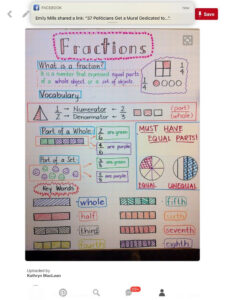 FACEBOOK
Emily Mills shared a link: "37 Politicians Get a Mural Dedicated to..."
Save
Fractions
What is a fraction?
It is a number that expresses equal parts
of a whole object or a set of objects.
1/4
1/4
Vocabulary
1/2 → Numerator ← 2
→ Denominator ← 3
(part)
(whole)
Part of a Whole
2/6 are green
4/6 are purple
Part of a Set
are green
are purple
MUST HAVE
EQUAL PARTS!
EQUAL
UNEQUAL
Key Words
whole
half
third
fourth
fifth
sixth
seventh
eighth
Uploaded by
Kathryn MacLean